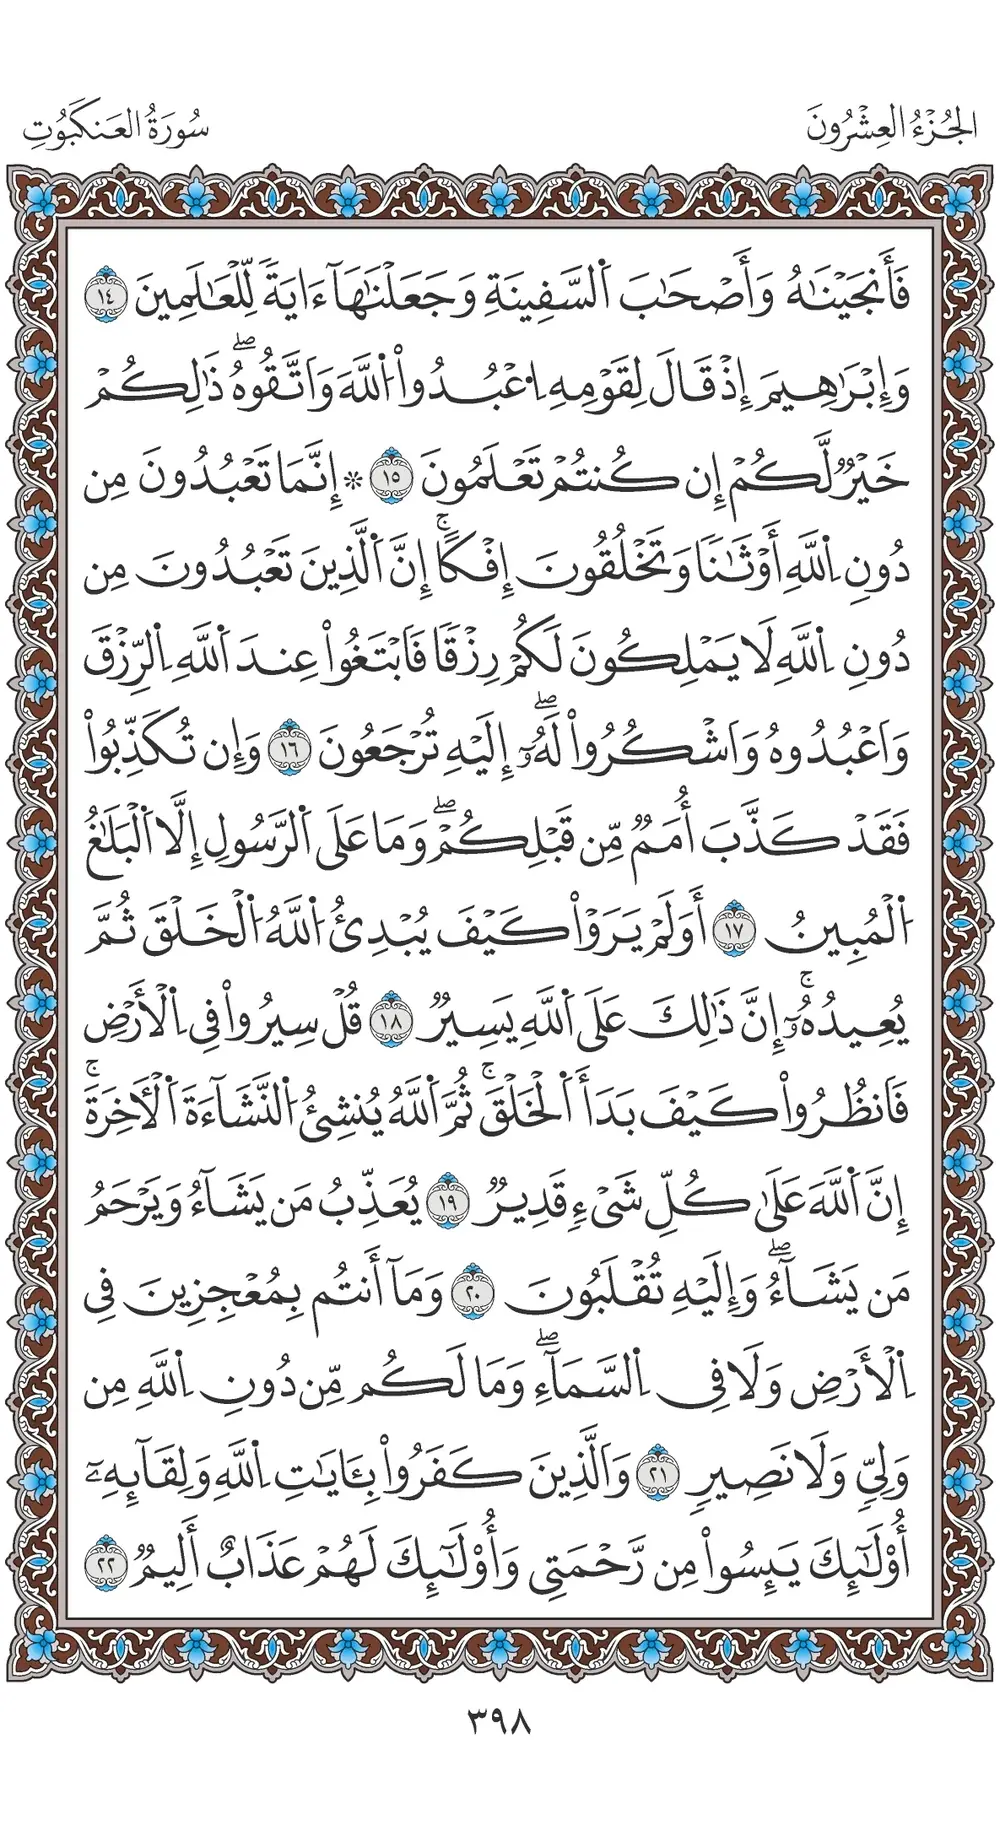 الجُزْءُ العِشْرُونَ
سُورَةُ العَنكَبُوتِ
فَأَنجَيْنَٰهُ وَأَصْحَٰبَ اَ۬لسَّفِينَةِ وَجَعَلْنَٰهَآ ءَايَةٗ لِّلْعَٰلَمِينَ ١٤
وَإِبْرَٰهِيمَ إِذْ قَالَ لِقَوْمِهِ اِ۟عْبُدُواْ اُ۬للَّهَ وَاتَّقُوهُۖ ذَٰلِكُمْ
خَيْرٞ لَّكُمْ إِن كُنتُمْ تَعْلَمُونَ ١٥ * إِنَّمَا تَعْبُدُونَ مِن
دُونِ اِ۬للَّهِ أَوْثَٰنٗا وَتَخْلُقُونَ إِفْكاًۚ إِنَّ اَ۬لَّذِينَ تَعْبُدُونَ مِن
دُونِ اِ۬للَّهِ لَا يَمْلِكُونَ لَكُمْ رِزْقٗا فَابْتَغُواْ عِندَ اَ۬للَّهِ اِ۬لرِّزْقَ
وَاعْبُدُوهُ وَاشْكُرُواْ لَهُۥٓۖ إِلَيْهِ تُرْجَعُونَ ١٦ وَإِن تُكَذِّبُواْ
فَقَدْ كَذَّبَ أُمَمٞ مِّن قَبْلِكُمْۖ وَمَا عَلَى اَ۬لرَّسُولِ إِلَّا اَ۬لْبَلَٰغُ
اُ۬لْمُبِينُ ١٧ أَوَلَمْ يَرَوْاْ كَيْفَ يُبْدِئُ اُ۬للَّهُ اُ۬لْخَلْقَ ثُمَّ
يُعِيدُهُۥٓۚ إِنَّ ذَٰلِكَ عَلَى اَ۬للَّهِ يَسِيرٞ ١٨ قُلْ سِيرُواْ فِي اِ۬لْأَرْضِ
فَانظُرُواْ كَيْفَ بَدَأَ اَ۬لْخَلْقَۚ ثُمَّ اَ۬للَّهُ يُنشِئُ اُ۬لنَّشَآءَةَ اَ۬لْأٓخِرَةَۚ
إِنَّ اَ۬للَّهَ عَلَىٰ كُلِّ شَيْءٖ قَدِيرٞ ١٩ يُعَذِّبُ مَن يَشَآءُ وَيَرْحَمُ
مَن يَشَآءُۖ وَإِلَيْهِ تُقْلَبُونَ ٢٠ وَمَآ أَنتُم بِمُعْجِزِينَ فِي
اِ۬لْأَرْضِ وَلَا فِي اِ۬لسَّمَآءِۖ وَمَا لَكُم مِّن دُونِ اِ۬للَّهِ مِن
وَلِيّٖ وَلَا نَصِيرٖ ٢١ وَالَّذِينَ كَفَرُواْ بِـَٔايَٰتِ اِ۬للَّهِ وَلِقَآئِهِۦٓ
أُوْلَٰٓئِكَ يَئِسُواْ مِن رَّحْمَتِي وَأُوْلَٰٓئِكَ لَهُمْ عَذَابٌ أَلِيمٞ ٢٢
٣٩٨